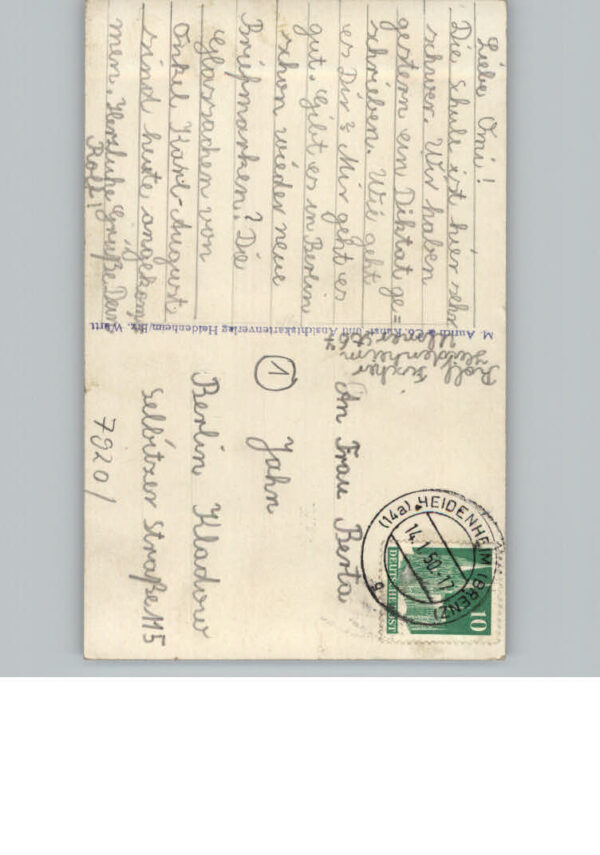 Liebe Omi!
Die Schule ist hier sehr
schwer. Wir haben
gestern ein Diktat ge=
schrieben. Wie geht
es Dir? Mir geht es
gut. Gibt es in Berlin
schon wieder neue
Briefmarken? Die
Glassachen von
Onkel Karl-August
sind heute angekom
men. Herzliche Grüße Dein
Rolf!
M. Aurich & Co. Kunst- und Ansichtskartenverlag Heidenheim/Brz. Württ
Rolf Fischer
Heidenheim
(14a) HEIDENHEIM (BRENZ)
14.1.50.17
g
10
DEUTSCHE POST
An Frau Berta
Jahn
1
Berlin Kladow
Selbitzer Straße 115
7920/